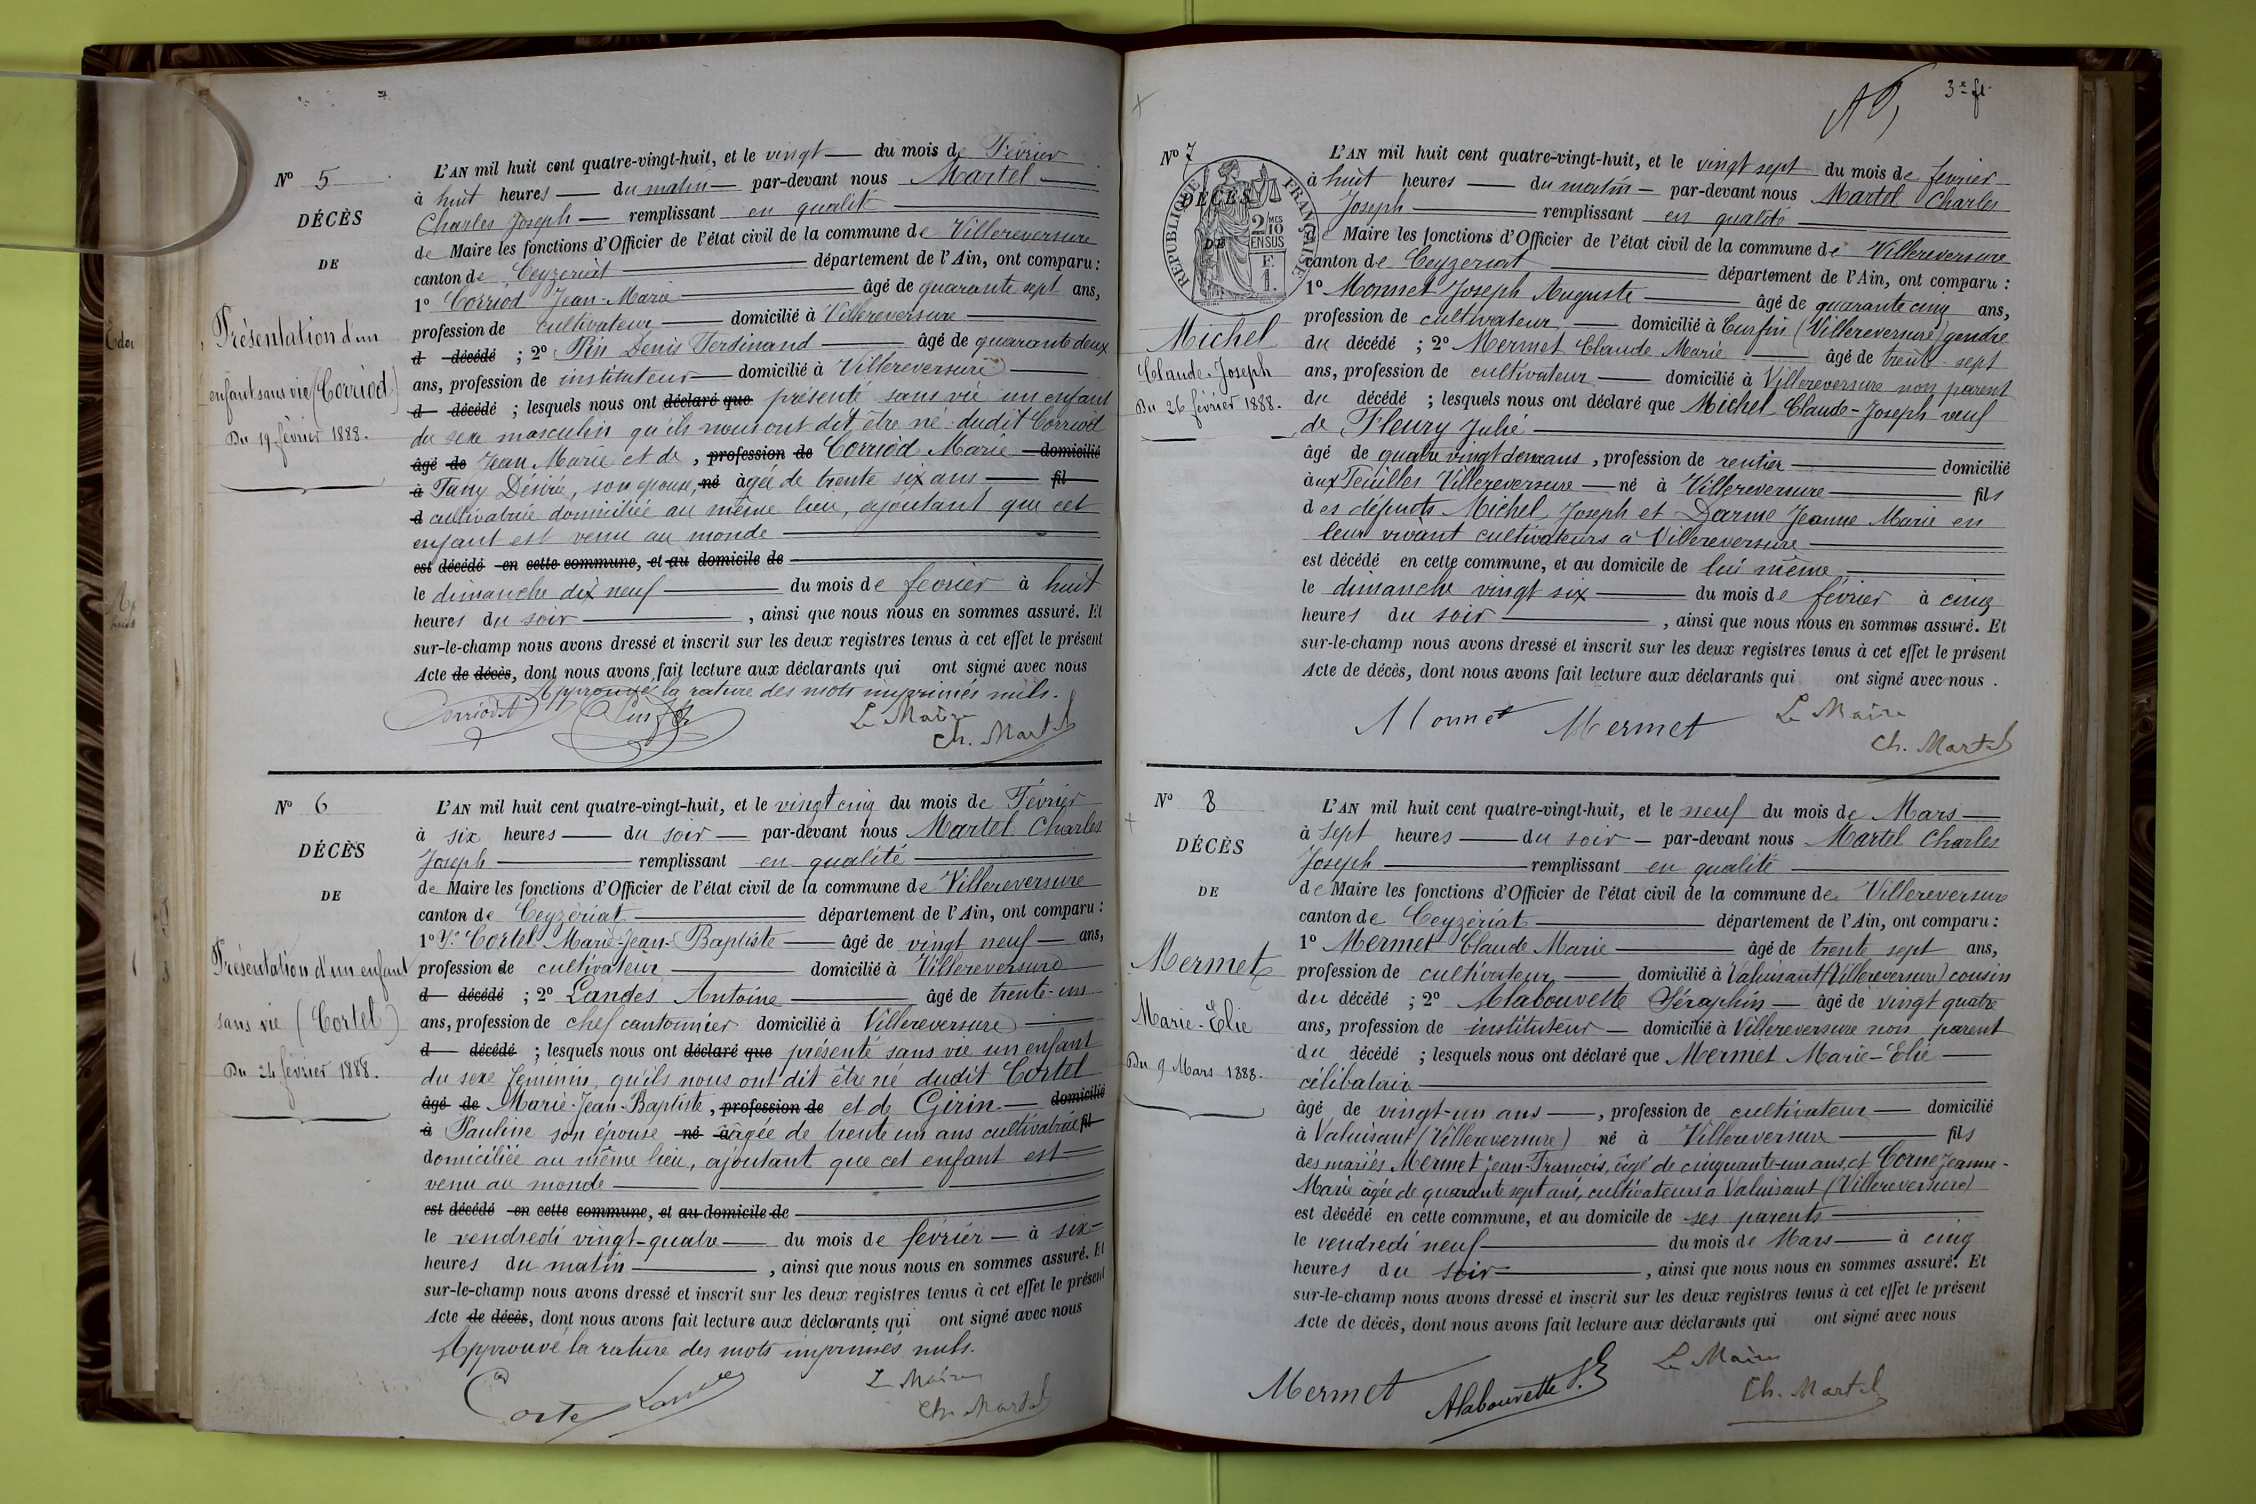 Nº 5
DÉCÈS
DE
Présentation d'un
enfant sans vie (Corriod)
Du 19 février 1888.
L'AN mil huit cent quatre-vingt-huit, et le vingt du mois de Février
à huit heures du matin par-devant nous Martel
Charles Joseph remplissant en qualité
de Maire les fonctions d'Officier de l'état civil de la commune de Villereversure
canton de Ceyzériat département de l'Ain, ont comparu :
1º Corriod Jean-Marie âgé de quarante sept ans,
profession de cultivateur domicilié à Villereversure
d décédé ; 2º Pin Denis Ferdinand âgé de quarante deux
ans, profession de instituteur domicilié à Villereversure
d décédé ; lesquels nous ont déclaré que présenté sans vie un enfant
du sexe masculin qu'ils nous ont dit être né dudit Corriod
âgé de Jean Marie et de , profession de Corriod Marie domicilié
à Fany Désirée, son épouse, né âgée de trente six ans fil
d cultivatrice domiciliée au même lieu, ajoutant que cet
enfant est venu au monde
est décédé en cette commune, et au domicile de
le dimanche dix neuf du mois de février à huit
heures du soir , ainsi que nous nous en sommes assuré. Et
sur-le-champ nous avons dressé et inscrit sur les deux registres tenus à cet effet le présent
Acte de décès, dont nous avons fait lecture aux déclarants qui ont signé avec nous
Approuvé la rature des mots imprimés nuls.
Corriod Pin Le Maire
Ch. Martel
Nº 6
DÉCÈS
DE
Présentation d'un enfant
sans vie (Cortel)
Du 24 février 1888.
L'AN mil huit cent quatre-vingt-huit, et le vingt cinq du mois de Février
à six heures du soir par-devant nous Martel Charles
Joseph remplissant en qualité
de Maire les fonctions d'Officier de l'état civil de la commune de Villereversure
canton de Ceyzériat département de l'Ain, ont comparu :
1º Cortel Marie-Jean-Baptiste âgé de vingt neuf ans,
profession de cultivateur domicilié à Villereversure
d décédé ; 2º Landes Antoine âgé de trente-un
ans, profession de chef cantonnier domicilié à Villereversure
d décédé ; lesquels nous ont déclaré que présenté sans vie un enfant
du sexe féminin, qu'ils nous ont dit être né dudit Cortel
âgé de Marie-Jean-Baptiste, profession de et de Girin domicilié
à Pauline son épouse né à âgée de trente un ans cultivatrice fil
domiciliée au même lieu, ajoutant que cet enfant est
venu au monde
est décédé en cette commune, et au domicile de
le vendredi vingt-quatre du mois de février à six
heures du matin , ainsi que nous nous en sommes assuré. Et
sur-le-champ nous avons dressé et inscrit sur les deux registres tenus à cet effet le présent
Acte de décès, dont nous avons fait lecture aux déclarants qui ont signé avec nous
Approuvé la rature des mots imprimés nuls.
Cortel Landes Le Maire
Ch. Martel
3e ft
Nº 7
DÉCÈS
DE
RÉPUBLIQUE FRANÇAISE
2 MES
10
EN SUS
F.
1.
Michel
Claude-Joseph
Du 26 février 1888.
L'AN mil huit cent quatre-vingt-huit, et le vingt sept du mois de février
à huit heures du matin par-devant nous Martel Charles
Joseph remplissant en qualité
de Maire les fonctions d'Officier de l'état civil de la commune de Villereversure
canton de Ceyzeriat département de l'Ain, ont comparu :
1º Monnet Joseph Auguste âgé de quarante cinq ans,
profession de cultivateur domicilié à Curfin (Villereversure) gendre
du décédé ; 2º Mermet Claude Marie âgé de trente-sept
ans, profession de cultivateur domicilié à Villereversure non parent
du décédé ; lesquels nous ont déclaré que Michel Claude-Joseph veuf
de Fleury Julie
âgé de quatre vingt deux ans, profession de rentier domicilié
aux Teuilles Villereversure né à Villereversure fils
des défunts Michel Joseph et Darme Jeanne Marie en
leur vivant cultivateurs à Villereversure
est décédé en cette commune, et au domicile de lui même,
le dimanche vingt six du mois de février à cinq
heures du soir , ainsi que nous nous en sommes assuré. Et
sur-le-champ nous avons dressé et inscrit sur les deux registres tenus à cet effet le présent
Acte de décès, dont nous avons fait lecture aux déclarants qui ont signé avec nous.
Monnet Mermet Le Maire
Ch. Martel
Nº 8
DÉCÈS
DE
Mermet
Marie-Elie
Du 9 Mars 1888.
L'AN mil huit cent quatre-vingt-huit, et le neuf du mois de Mars
à sept heures du soir par-devant nous Martel Charles
Joseph remplissant en qualité
de Maire les fonctions d'Officier de l'état civil de la commune de Villereversure
canton de Ceyzériat département de l'Ain, ont comparu :
1º Mermet Claude Marie âgé de trente sept ans,
profession de cultivateur domicilié à Valuisant (Villereversure) cousin
du décédé ; 2º Alabouvette Séraphin âgé de vingt quatre
ans, profession de instituteur domicilié à Villereversure non parent
du décédé ; lesquels nous ont déclaré que Mermet Marie-Elie
célibataire
âgé de vingt-un ans , profession de cultivateur domicilié
à Valuisant (Villereversure) né à Villereversure fils
des mariés Mermet Jean-François, âgé de cinquante-un ans, et Corne Jeanne-
Marie âgée de quarante sept ans, cultivateurs à Valuisant (Villereversure)
est décédé en cette commune, et au domicile de ses parents
le vendredi neuf du mois de Mars à cinq
heures du soir , ainsi que nous nous en sommes assuré. Et
sur-le-champ nous avons dressé et inscrit sur les deux registres tenus à cet effet le présent
Acte de décès, dont nous avons fait lecture aux déclarants qui ont signé avec nous
Mermet Alabouvette S. Le Maire
Ch. Martel